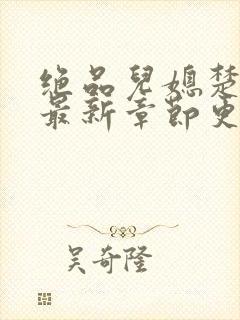 绝品儿媳楚
最新章节更
吴奇隆